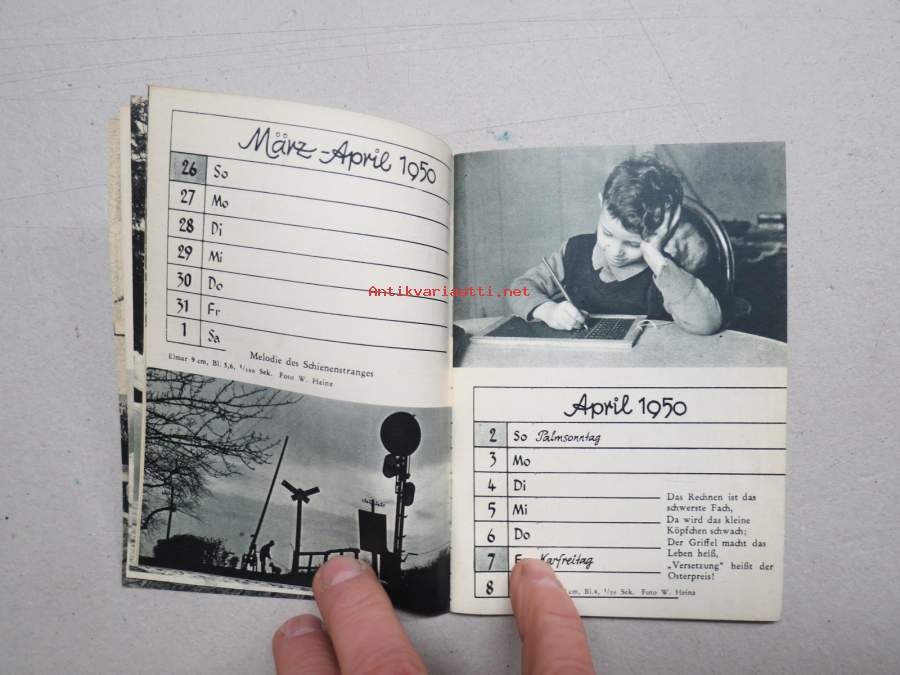 März-April 1950
26 So
27 Mo
28 Di
29 Mi
30 Do
31 Fr
1 Sa
Melodie des Schienenstranges
Elmar 9 cm, Bl. 5,6, Sek. Foto W. Heine
Antikvariaatti.net
April 1950
2 So Palmsonntag
3 Mo
4 Di
5 Mi
6 Do
7 Karfreitag
8
Das Rechnen ist das
schwerste Fach,
Da wird das kleine
Köpfchen schwach;
Der Griffel macht das
Leben heiß,
„Versetzung" heißt der
Osterpreis!
cm, Bl.4, Sek. Foto W. Heine